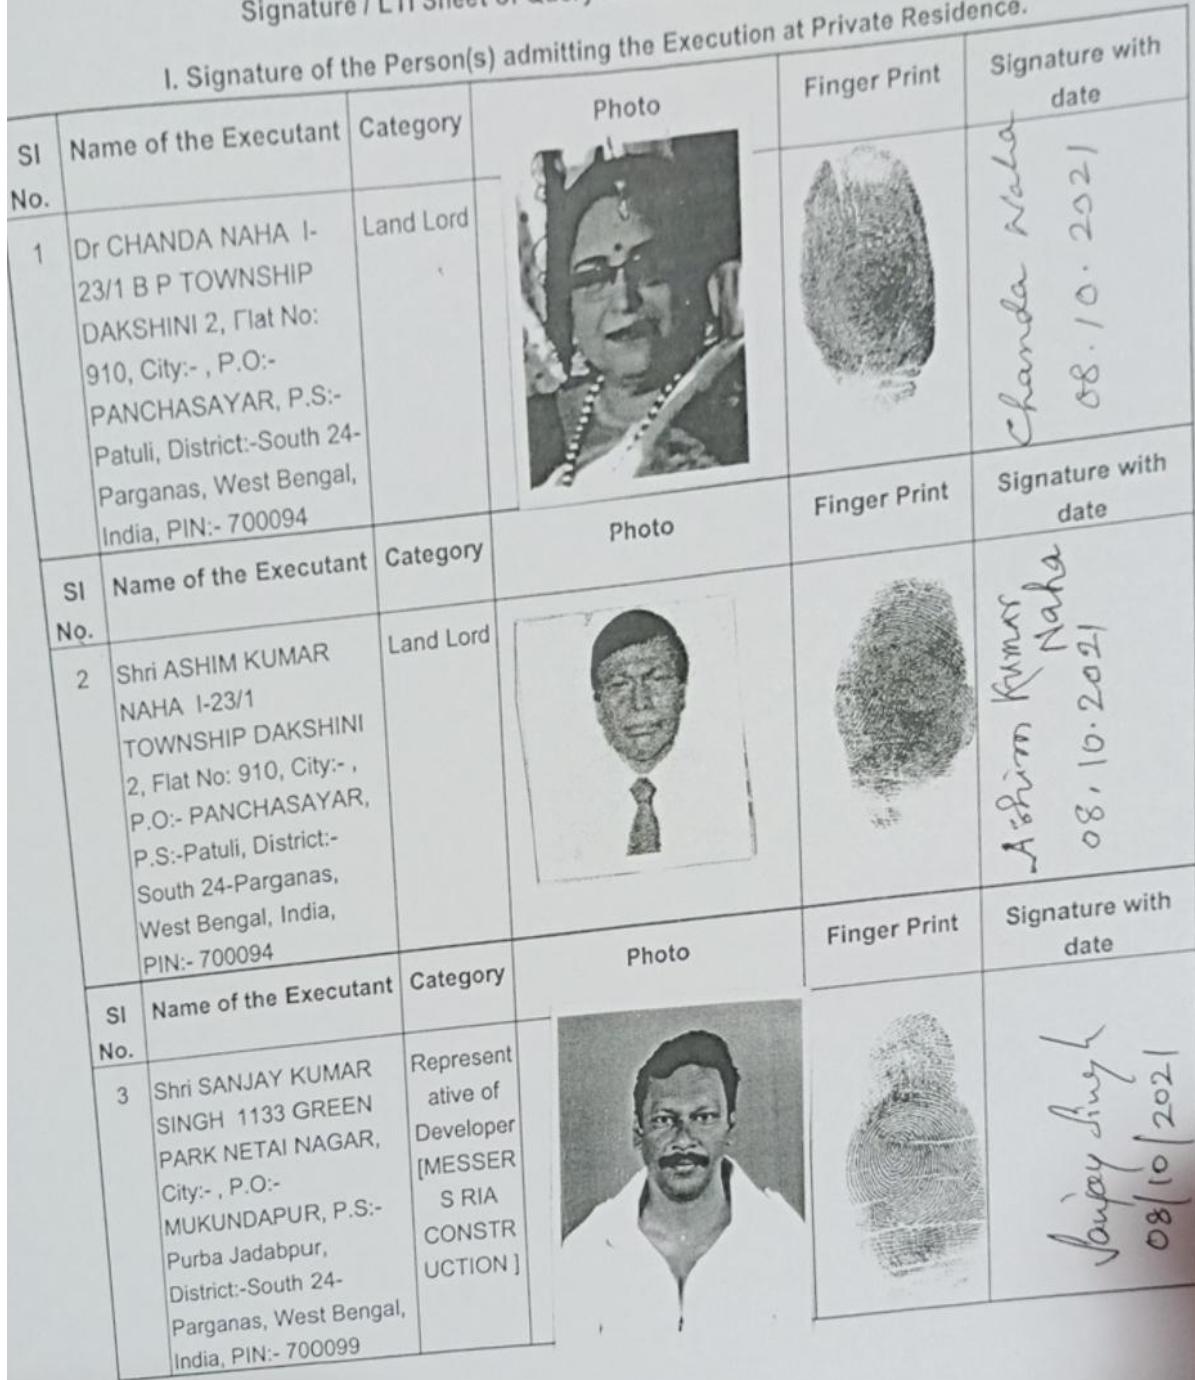 Signature / LTI Sheet of Query
I. Signature of the Person(s) admitting the Execution at Private Residence.
SI No.
Name of the Executant
Category
Photo
Finger Print
Signature with date
1
Dr CHANDA NAHA I-
23/1 B P TOWNSHIP
DAKSHINI 2, Flat No:
910, City:- , P.O:-
PANCHASAYAR, P.S:-
Patuli, District:-South 24-
Parganas, West Bengal,
India, PIN:- 700094
Land Lord
Chanda Naha
08.10.2021
SI No.
Name of the Executant
Category
Photo
Finger Print
Signature with date
2
Shri ASHIM KUMAR
NAHA I-23/1
TOWNSHIP DAKSHINI
2, Flat No: 910, City:- ,
P.O:- PANCHASAYAR,
P.S:-Patuli, District:-
South 24-Parganas,
West Bengal, India,
PIN:- 700094
Land Lord
Ashim Kumar
Naha
08.10.2021
SI No.
Name of the Executant
Category
Photo
Finger Print
Signature with date
3
Shri SANJAY KUMAR
SINGH 1133 GREEN
PARK NETAI NAGAR,
City:- , P.O:-
MUKUNDAPUR, P.S:-
Purba Jadabpur,
District:-South 24-
Parganas, West Bengal,
India, PIN:- 700099
Represent
ative of
Developer
[MESSER
S RIA
CONSTR
UCTION ]
Sanjay Singh
08/10/2021